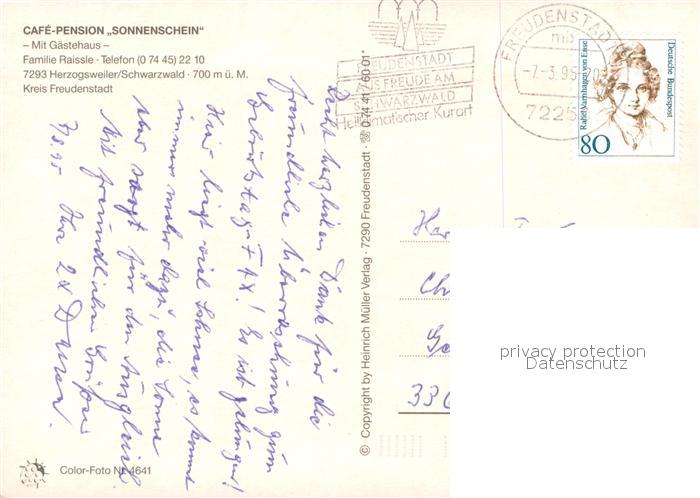 CAFÉ-PENSION „SONNENSCHEIN"
– Mit Gästehaus –
Familie Raissle · Telefon (0 74 45) 22 10
7293 Herzogsweiler/Schwarzwald · 700 m ü. M.
Kreis Freudenstadt
Recht herzlichen Dank für die
freundliche Überraschung zum
Geburtstag! Es ist gelungen!
Hier liegt viel Schnee, es kommt
immer mehr dazu, die Sonne
aber sorgt für den Ausgleich
Mit freundlichen Grüßen
7.3.95 Ihre
Color-Foto Nr. 4641
© Copyright by Heinrich Müller Verlag · 7290 Freudenstadt · ☎ 0 74 41 / 60 01*
FREUDENSTADT
AUS FREUDE AM
SCHWARZWALD
Heilklimatischer Kurort
FREUDENSTADT
mb
-7.-3.95
7225
Rahel Varnhagen von Ense
Deutsche Bundespost
80
privacy protection
Datenschutz